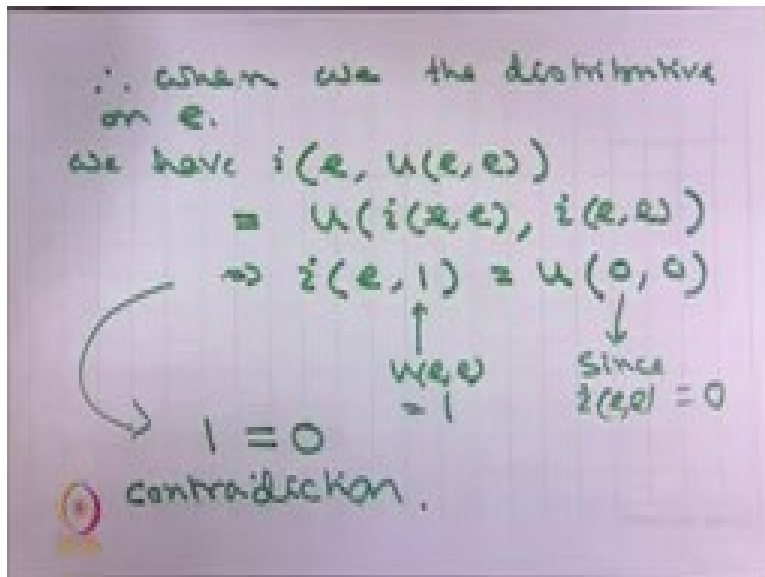 ∴ when use the distributive
on e.
we have i(e, u(e,e))
= u(i(e,e), i(e,e))
⇒ i(e, 1) = u(0, 0)
u(e,e)
= 1
Since
i(e,e) = 0
1 = 0
contradiction.